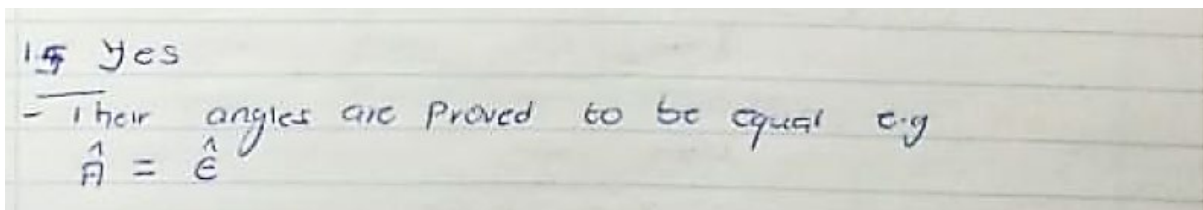 1.5 Yes
- Their angles are Proved to be equal e.g
Â = Ê